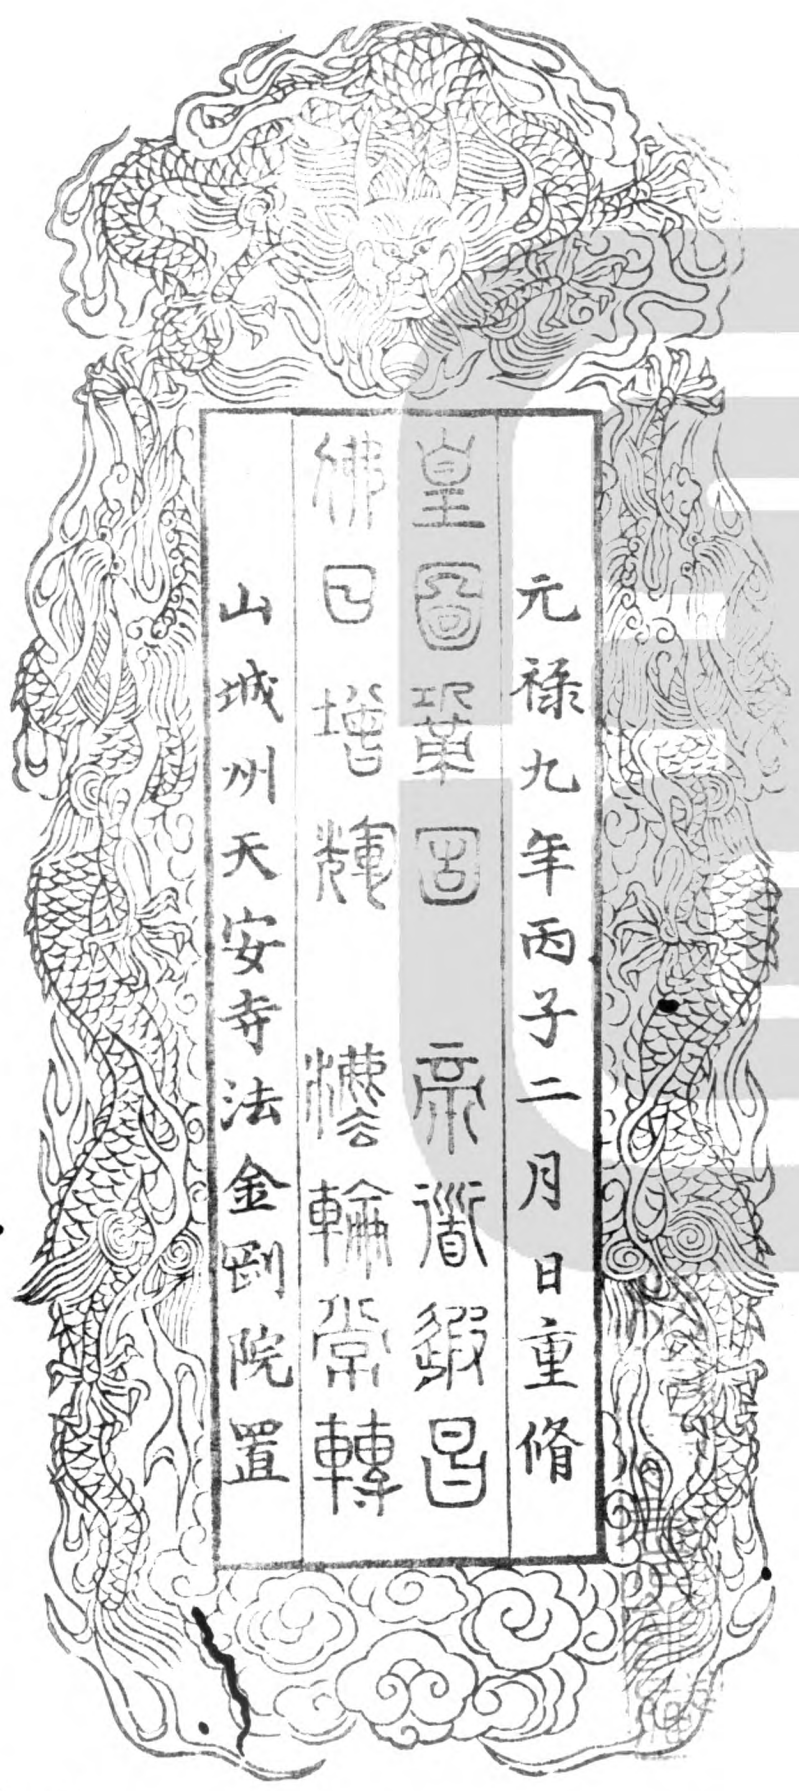 元祿九年丙子二月日重脩
皇圖鞏固　帝道遐昌
佛日增輝　灋輪常轉
山城州天安寺法金剛院置